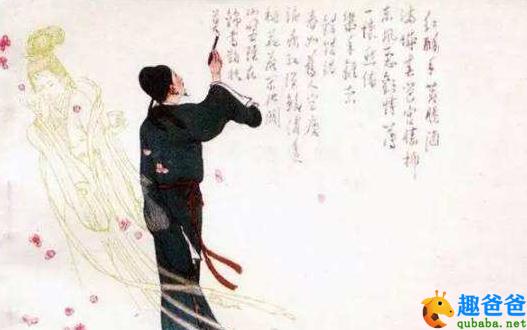 红酥手黄縢酒
满城春色宫墙柳
东风恶欢情薄
一懷愁绪
幾年離索
錯錯錯
春如舊人空瘦
淚痕红浥鲛绡透
桃花落闲池阁
山盟雖在
錦書難托
莫
趣爸爸
qubaba.net